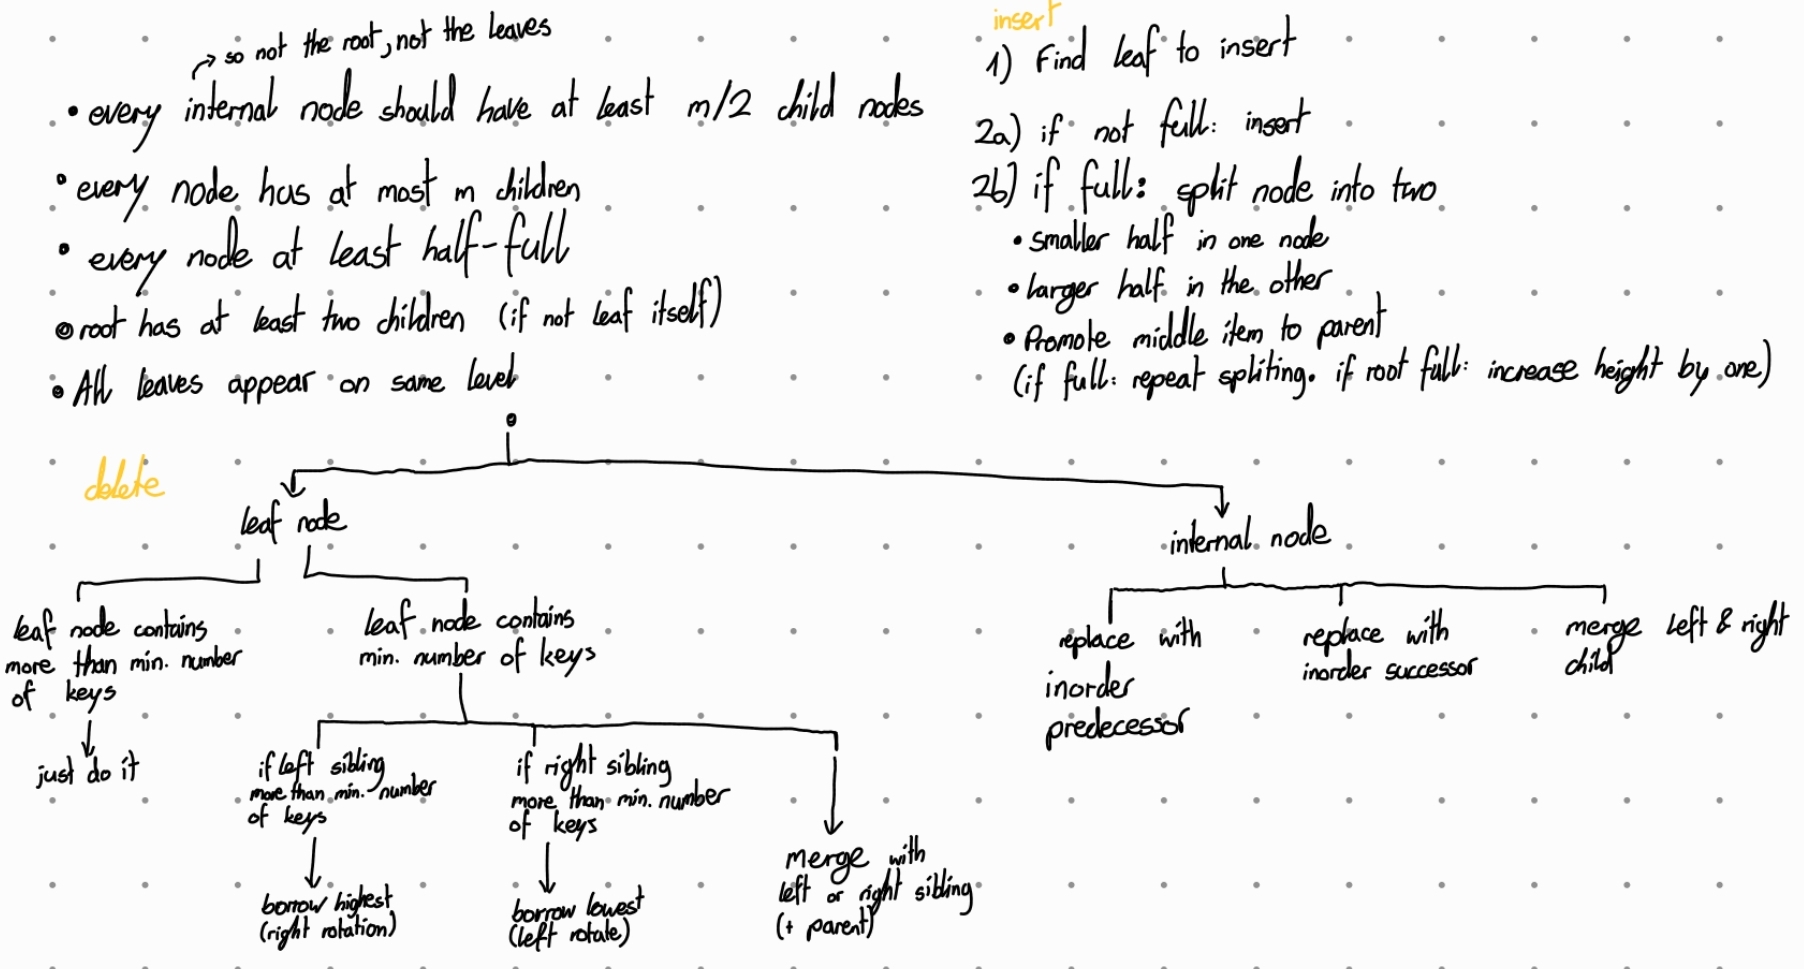 so not the root, not the leaves
• every internal node should have at least m/2 child nodes
• every node has at most m children
• every node at least half-full
• root has at least two children (if not leaf itself)
• All leaves appear on same level
insert
1) Find leaf to insert
2a) if not full: insert
2b) if full: split node into two
• smaller half in one node
• larger half in the other
• Promote middle item to parent
(if full: repeat spliting. if root full: increase height by one)
delete
leaf node
internal node
leaf node contains
more than min. number
of keys
just do it
leaf node contains
min. number of keys
if left sibling
more than min. number
of keys
borrow highest
(right rotation)
if right sibling
more than min. number
of keys
borrow lowest
(left rotate)
merge with
left or right sibling
(+ parent)
replace with
inorder
predecessor
replace with
inorder successor
merge left & right
child